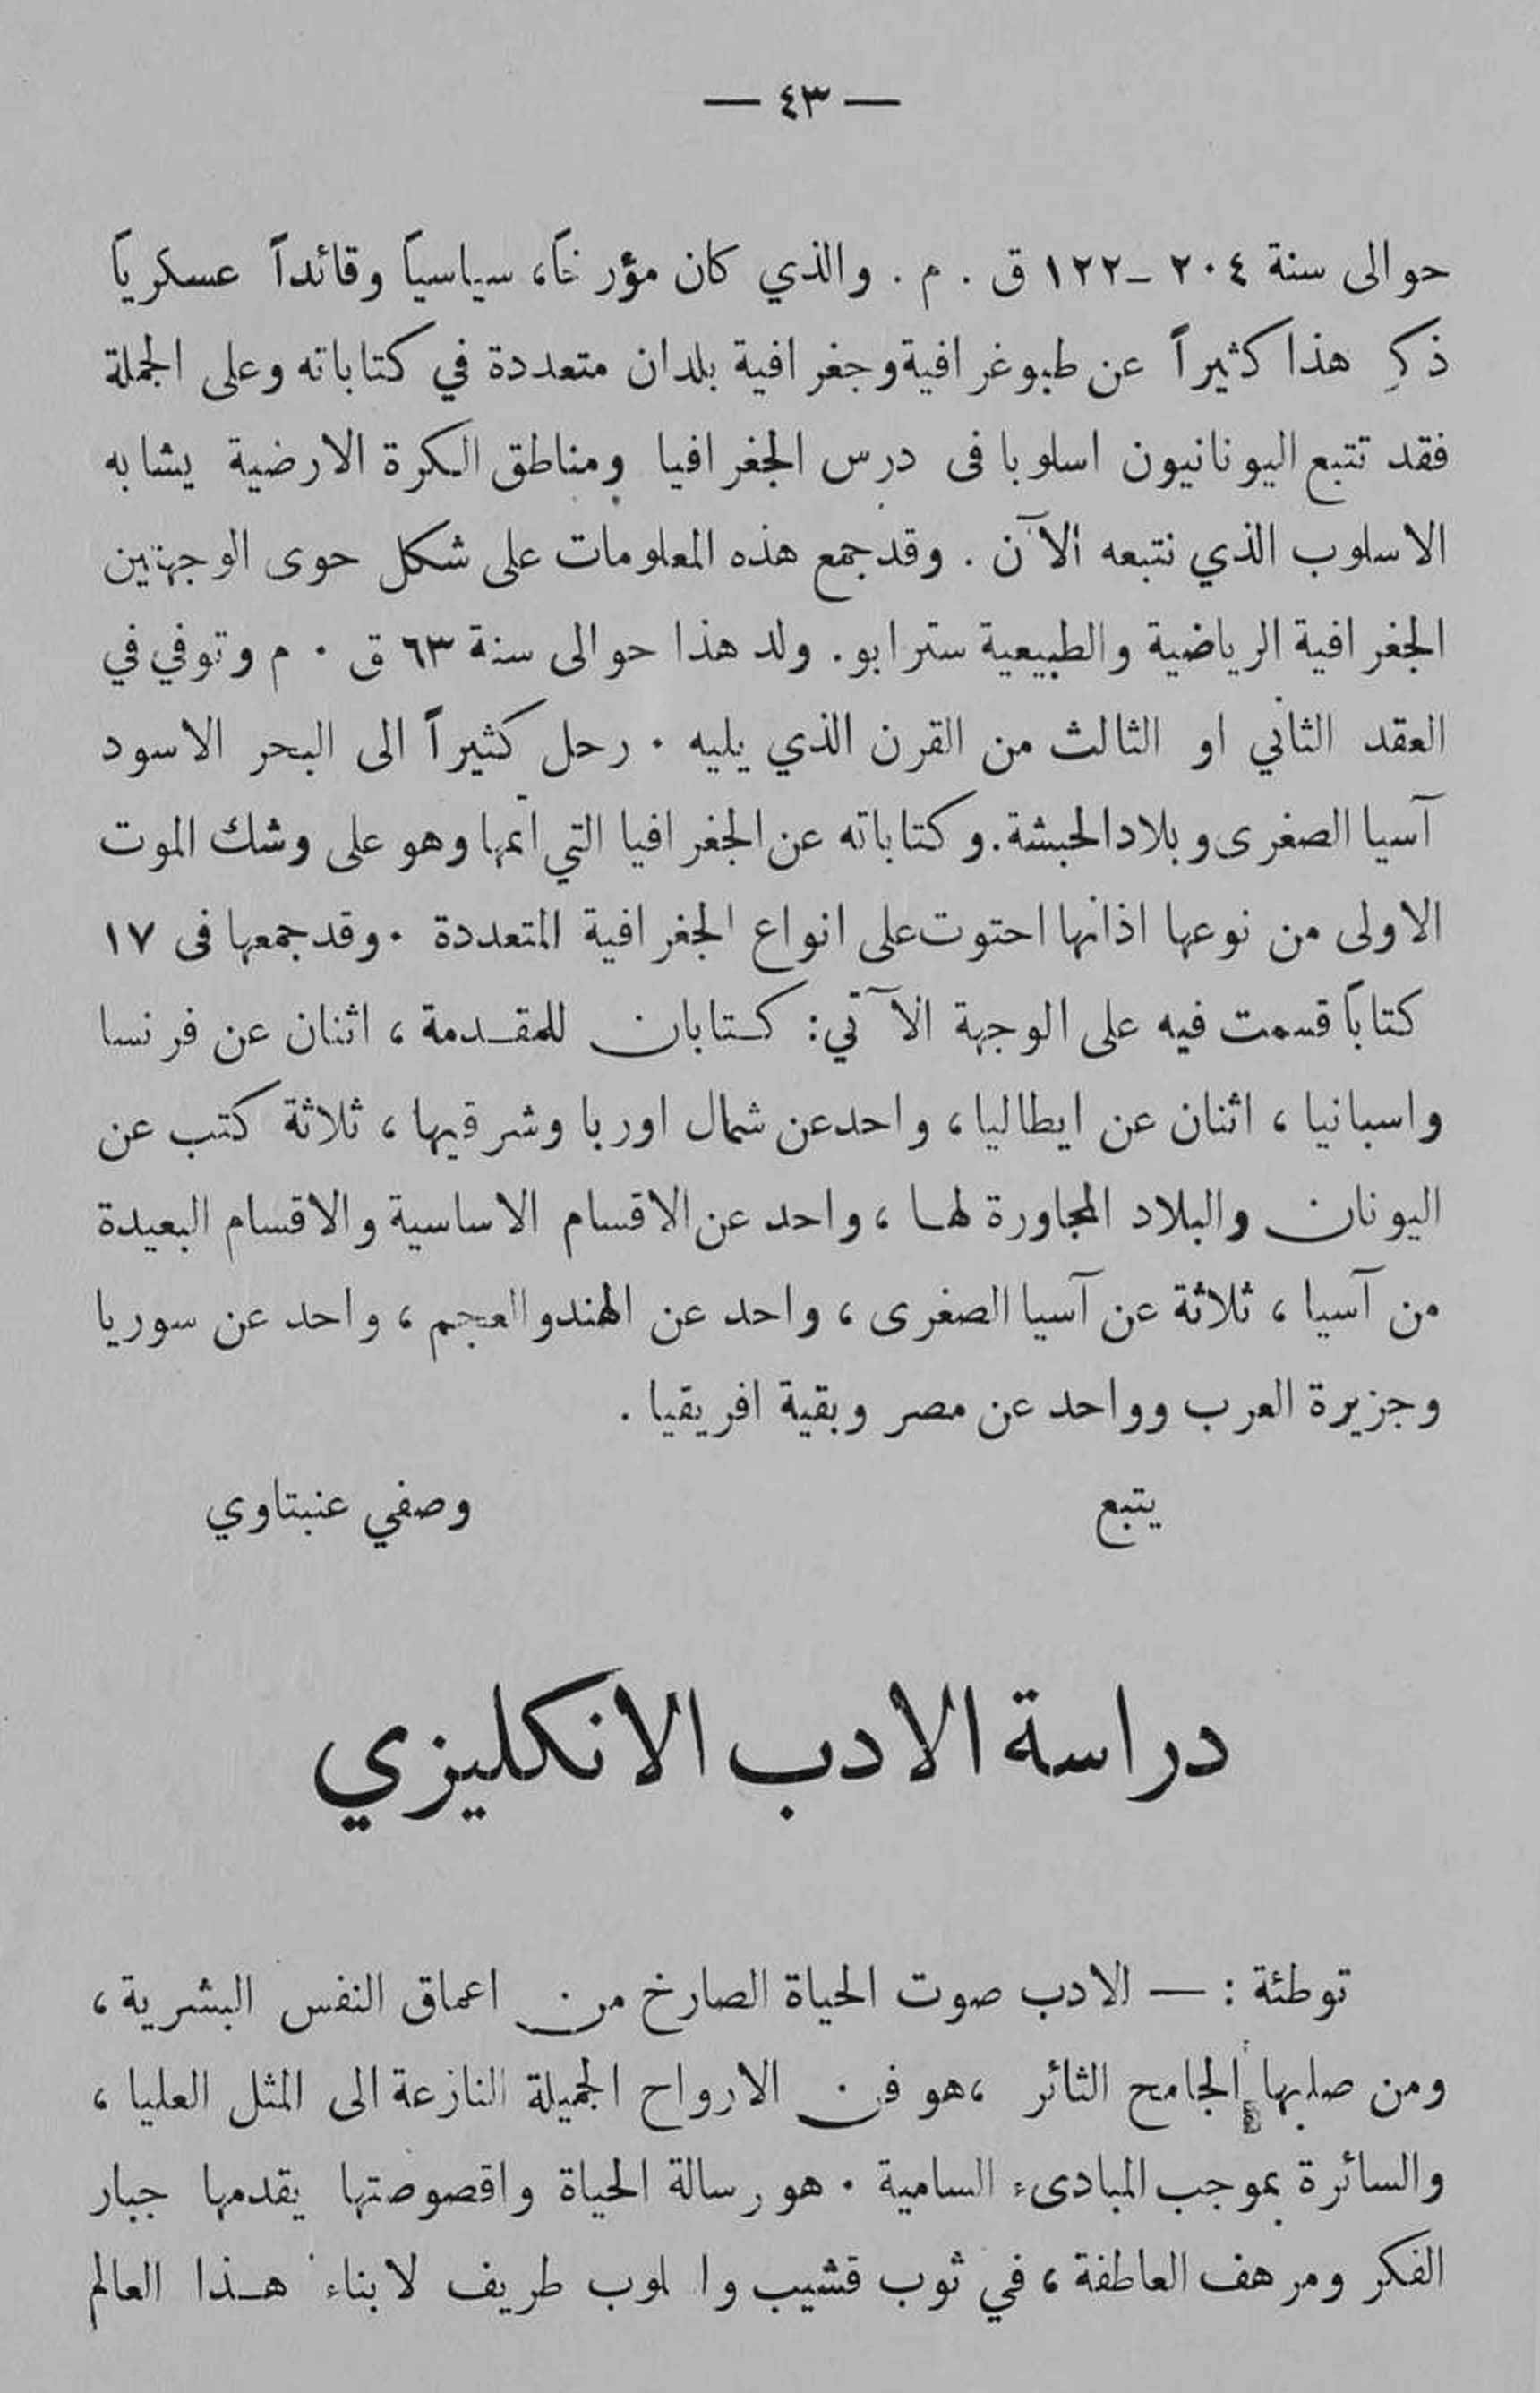 — ٤٣ —
حوالى سنة ٢٠٤ – ١٢٢ ق . م . والذي كان مؤرخاً، سياسياً وقائداً عسكرياً
ذكر هذا كثيراً عن طبوغرافية وجغرافية بلدان متعددة في كتاباته وعلى الجملة
فقد تتبع اليونانيون اسلوبا فى درس الجغرافيا ومناطق الكرة الارضية يشابه
الاسلوب الذي نتبعه الآن . وقد جمع هذه المعلومات على شكل حوى الوجهتين
الجغرافية الرياضية والطبيعية سترابو . ولد هذا حوالى سنة ٦٣ ق . م وتوفي في
العقد الثاني او الثالث من القرن الذي يليه . رحل كثيراً الى البحر الاسود
آسيا الصغرى وبلاد الحبشة . وكتاباته عن الجغرافيا التي اتمها وهو على وشك الموت
الاولى من نوعها اذانها احتوت على انواع الجغرافية المتعددة . وقد جمعها فى ١٧
كتاباً قسمت فيه على الوجهة الآتي : كتابان للمقدمة ، اثنان عن فرنسا
واسبانيا ، اثنان عن ايطاليا ، واحد عن شمال اوربا وشرقيها ، ثلاثة كتب عن
اليونان والبلاد المجاورة لها ، واحد عن الاقسام الاساسية والاقسام البعيدة
من آسيا ، ثلاثة عن آسيا الصغرى ، واحد عن الهند والعجم ، واحد عن سوريا
وجزيرة العرب وواحد عن مصر وبقية افريقيا .
يتبع وصفي عنبتاوي
دراسة الادب الانكليزي
توطئة : — الادب صوت الحياة الصارخ من اعماق النفس البشرية ،
ومن صلبها الجامح الثائر ، هو فن الارواح الجميلة النازعة الى المثل العليا ،
والسائرة بموجب المبادىء السامية . هو رسالة الحياة واقصوصتها يقدمها جبار
الفكر ومرهف العاطفة ، في ثوب قشيب وا لوب طريف لابناء هذا العالم